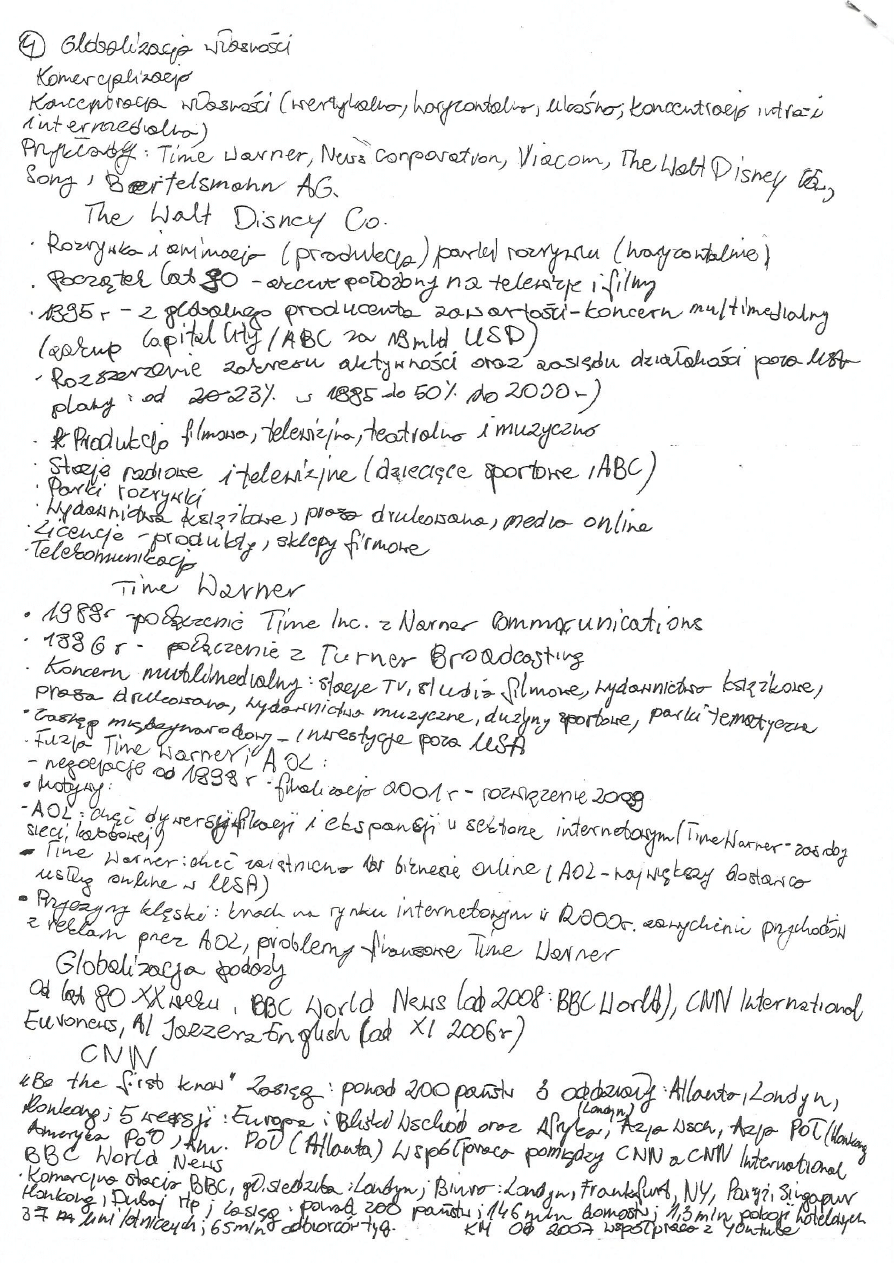 ④ Globalizacja własności
Komercjalizacja
Koncentracja własności (wertykalna, horyzontalna, ukośna; koncentracja intra- i
intermedialna)
Przykłady: Time Warner, News Corporation, Viacom, The Walt Disney Co.,
Sony, Bertelsmann AG.
The Walt Disney Co.
· Rozrywka i animacja (produkcja) parki rozrywki (horyzontalnie)
· Początek lat 90 - akcent położony na telewizję i filmy
· 1995 r - z globalnego producenta zawartości - koncern multimedialny
(zakup Capital City / ABC za 19 mld USD)
· Rozszerzenie zakresu aktywności oraz zasięgu działalności poza USA
plany: od 23% w 1995 do 50% do 2000 r)
· Produkcja filmowa, telewizyjna, teatralna i muzyczna
· Stacje radiowe i telewizyjne (dziecięce sportowe, ABC)
· Parki rozrywki
· Wydawnictwa książkowe, prasa drukowana, media online
· Licencje - produkty, sklepy firmowe
· Telekomunikacja
Time Warner
· 1989r połączenie Time Inc. z Warner Communications
· 1996 r - połączenie z Turner Broadcasting
· Koncern multimedialny: stacje TV, studia filmowe, wydawnictwo książkowe,
prasa drukowana, wydawnictwa muzyczne, drużyny sportowe, parki tematyczne
· Zasięg międzynarodowy - inwestycje poza USA
· Fuzja Time Warner i AOL:
- negocjacje od 1999 r - finalizacja 2001 r - rozwiązanie 2009
· Motywy:
- AOL: chęć dywersyfikacji i ekspansji w sektorze internetowym (Time Warner - zasoby
sieci kablowej)
- Time Warner: chęć zaistnienia w biznesie online (AOL - największy dostawca
usług online w USA)
· Przyczyny klęski: krach na rynku internetowym w 2000r. zawyżenie przychodów
z reklam przez AOL, problemy finansowe Time Warner
Globalizacja podaży
Od lat 80 XX wieku, BBC World News (od 2008: BBC World), CNN International
Euronews, Al Jazeera English (od XI 2006 r)
CNN
"Be the first know" Zasięg: ponad 200 państw 3 oddziały: Atlanta, Londyn,
Honkong; 5 wersji: Europa i Bliski Wschód oraz Afryka (Londyn), Azja Wsch, Azja Poł (Honkong
Ameryka Poł, Am. Poł (Atlanta) Współpraca pomiędzy CNN a CNN International
BBC World News
· Komercyjna stacja BBC, gł. siedziba: Londyn; Biura: Londyn, Frankfurt, NY, Paryż, Singapur
Honkong, Dubaj itp; zasięg: ponad 200 państw; 146 mln domostw; 1,3 mln pokoji hotelowych
37 linii lotniczych; 65 mln odbiorców tyg. Od 2007 współpraca z youtube